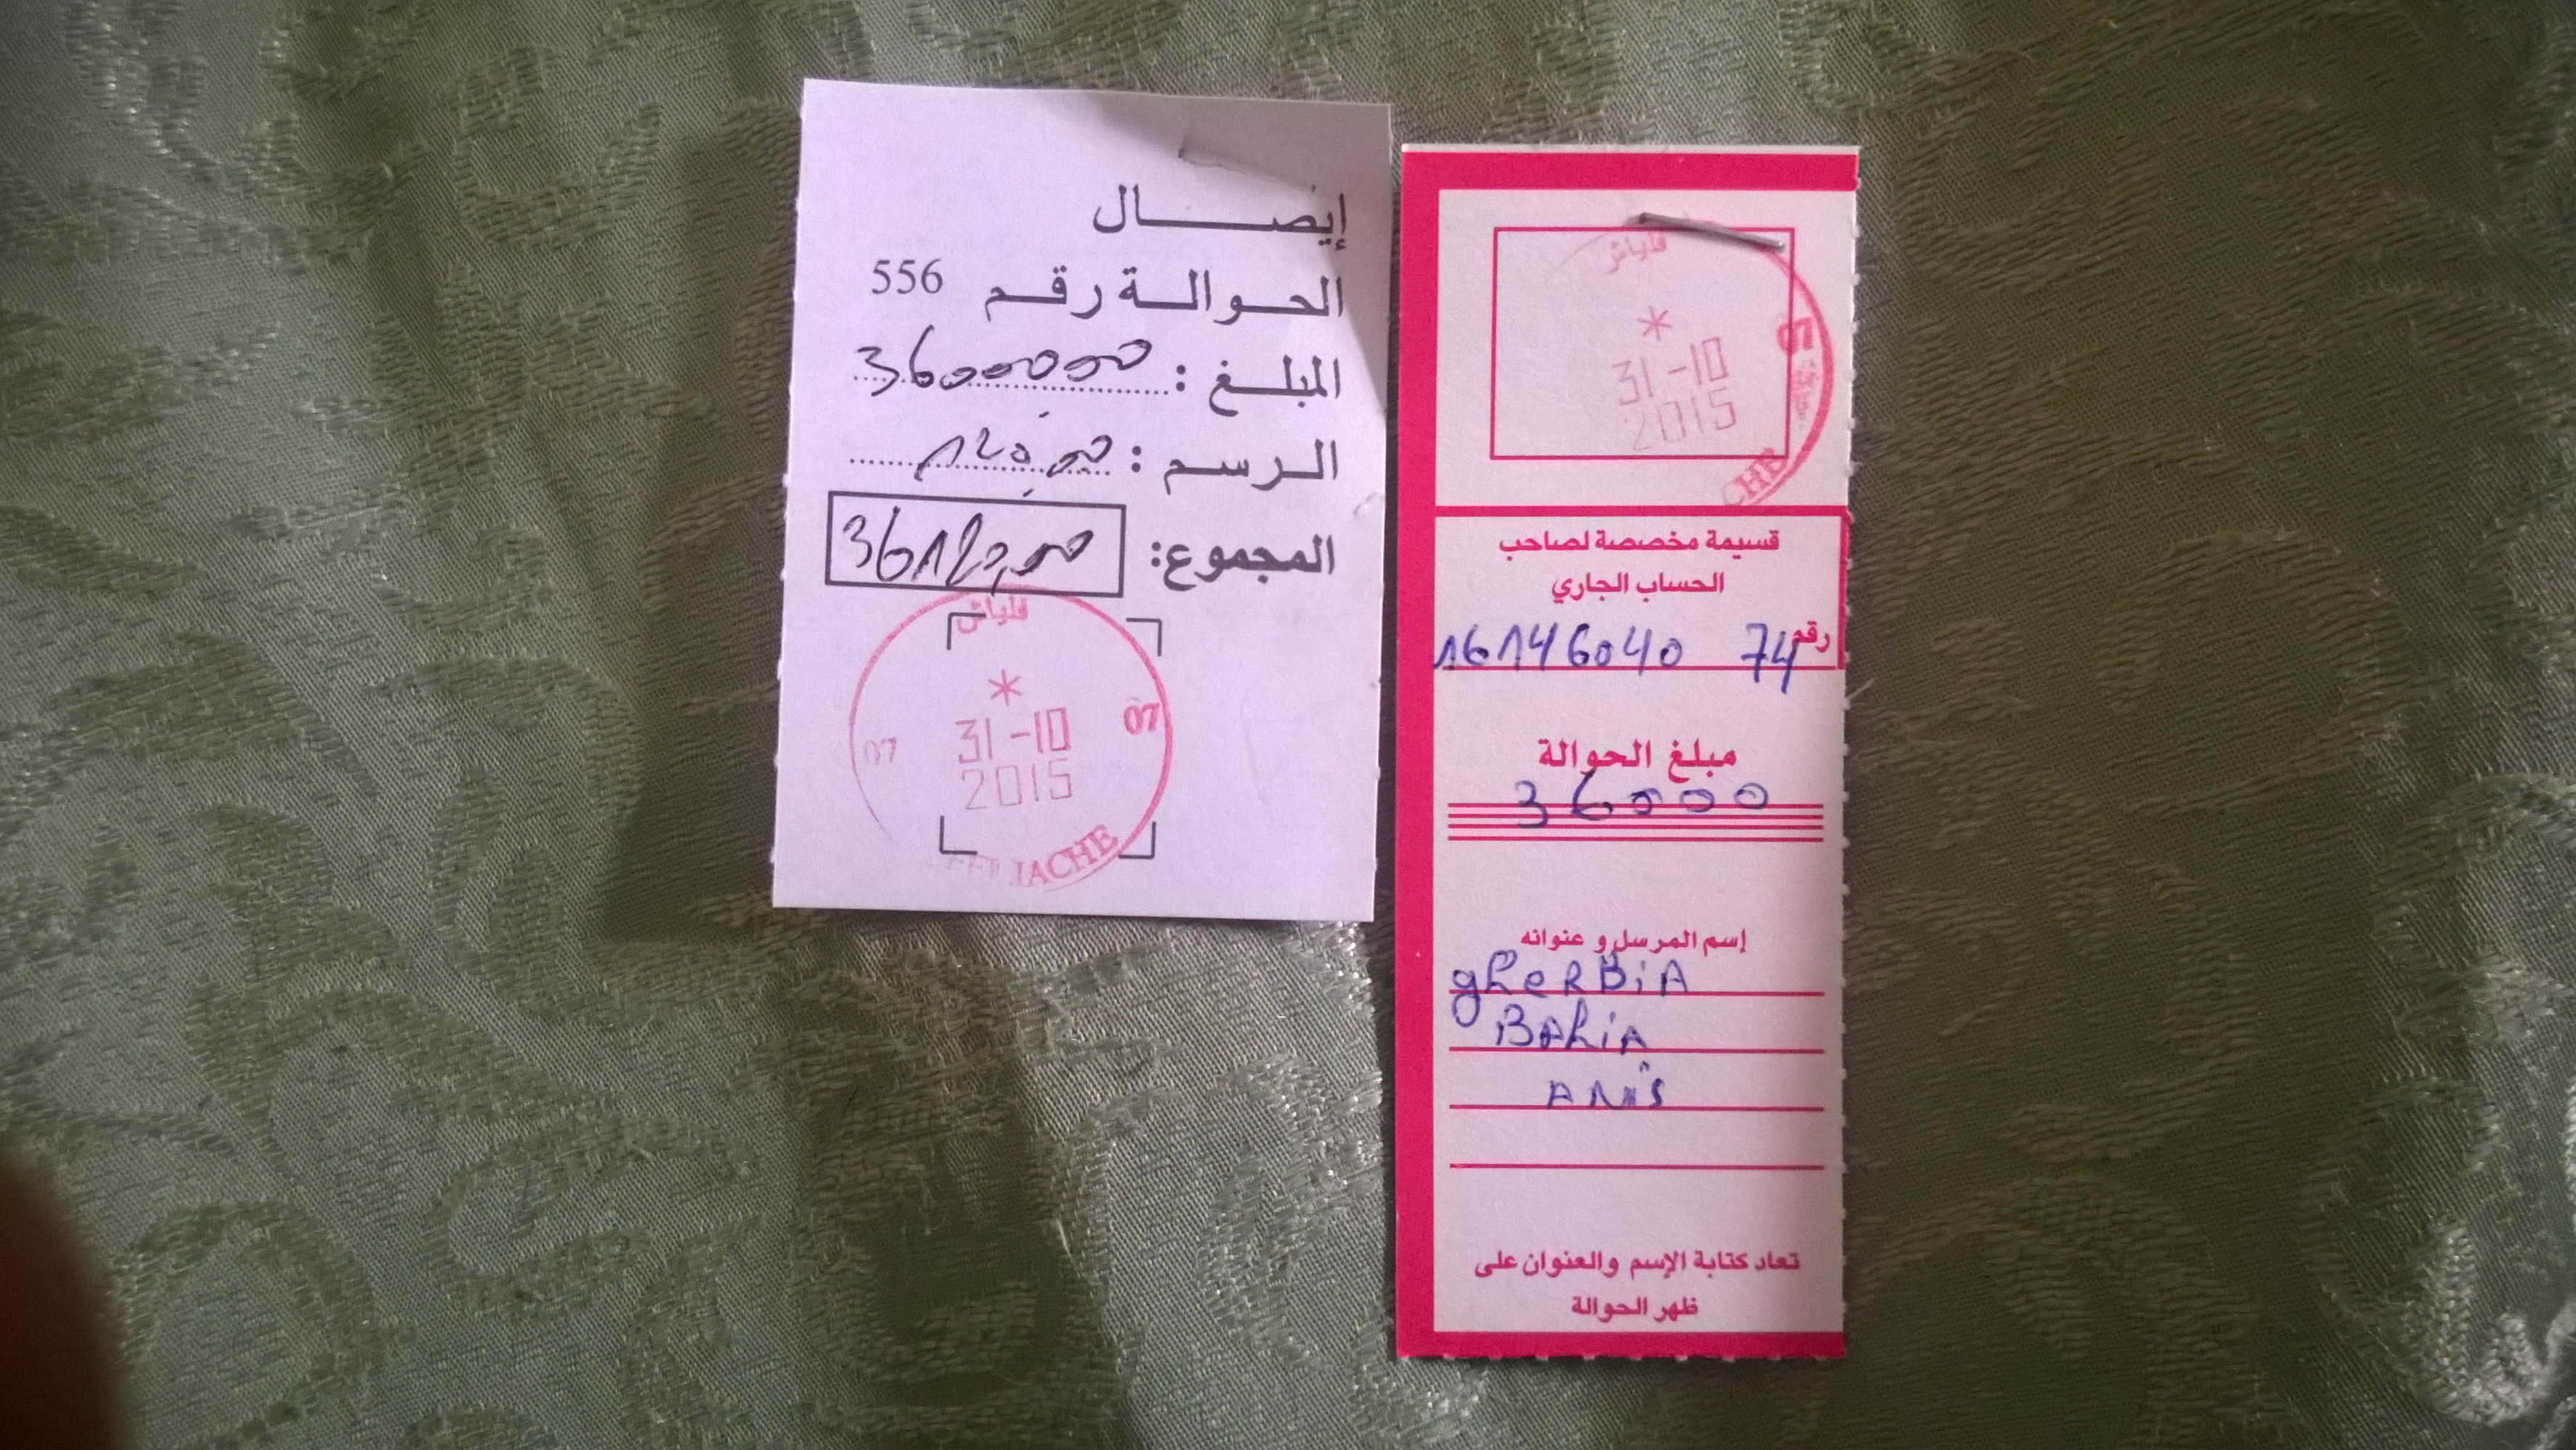 إيصال
الحوالة رقم 556
المبلغ : 36000,00
الرسم : 120,00
المجموع: 36120,00
فلياش
07
07
31-10
2015
IACHE
فلياش
07
31-10
2015
CHE
قسيمة مخصصة لصاحب
الحساب الجاري
رقم 16146040 74
مبلغ الحوالة
36000
إسم المرسل و عنوانه
gheRBiA
BAhiA
ANiS
تعاد كتابة الإسم والعنوان على
ظهر الحوالة